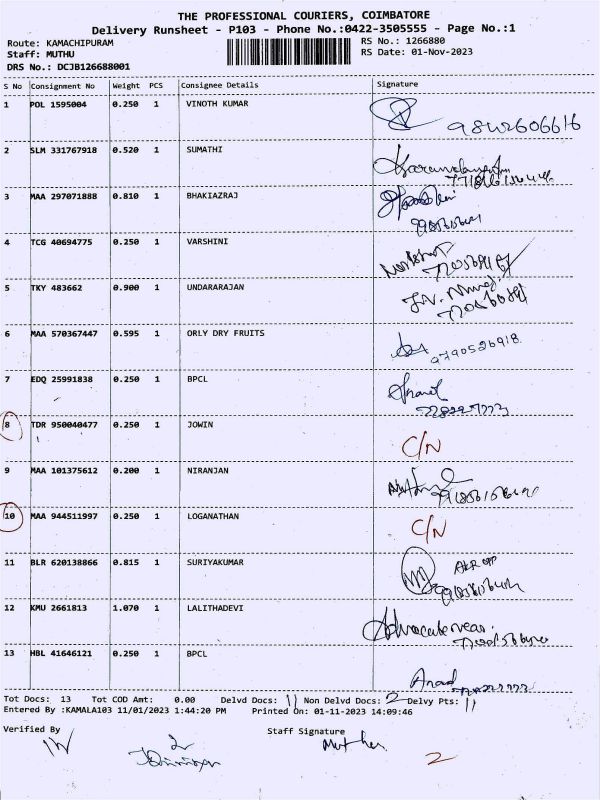 THE PROFESSIONAL COURIERS, COIMBATORE
Delivery Runsheet - P103 - Phone No.:0422-3505555 - Page No.:1
Route: KAMACHIPURAM
RS No.: 1266880
Staff: MUTHU
RS Date: 01-Nov-2023
DRS No.: DCJB126688001
S No Consignment No Weight PCS Consignee Details Signature
1 POL 1595004 0.250 1 VINOTH KUMAR
2 SLM 331767918 0.520 1 SUMATHI
3 MAA 297071888 0.810 1 BHAKIAZRAJ
4 TCG 40694775 0.250 1 VARSHINI
5 TKY 483662 0.900 1 UNDARARAJAN
6 MAA 570367447 0.595 1 ORLY DRY FRUITS 9790526918
7 EDQ 25991838 0.250 1 BPCL
8 TDR 950040477 0.250 1 JOWIN C/N
9 MAA 101375612 0.200 1 NIRANJAN
10 MAA 944511997 0.250 1 LOGANATHAN C/N
11 BLR 620138866 0.815 1 SURIYAKUMAR
12 KMU 2661813 1.070 1 LALITHADEVI
13 HBL 41646121 0.250 1 BPCL
Tot Docs: 13 Tot COD Amt: 0.00 Delvd Docs: 11 Non Delvd Docs: 2 Delvy Pts: 11
Entered By :KAMALA103 11/01/2023 1:44:20 PM Printed On: 01-11-2023 14:09:46
Verified By Staff Signature
2